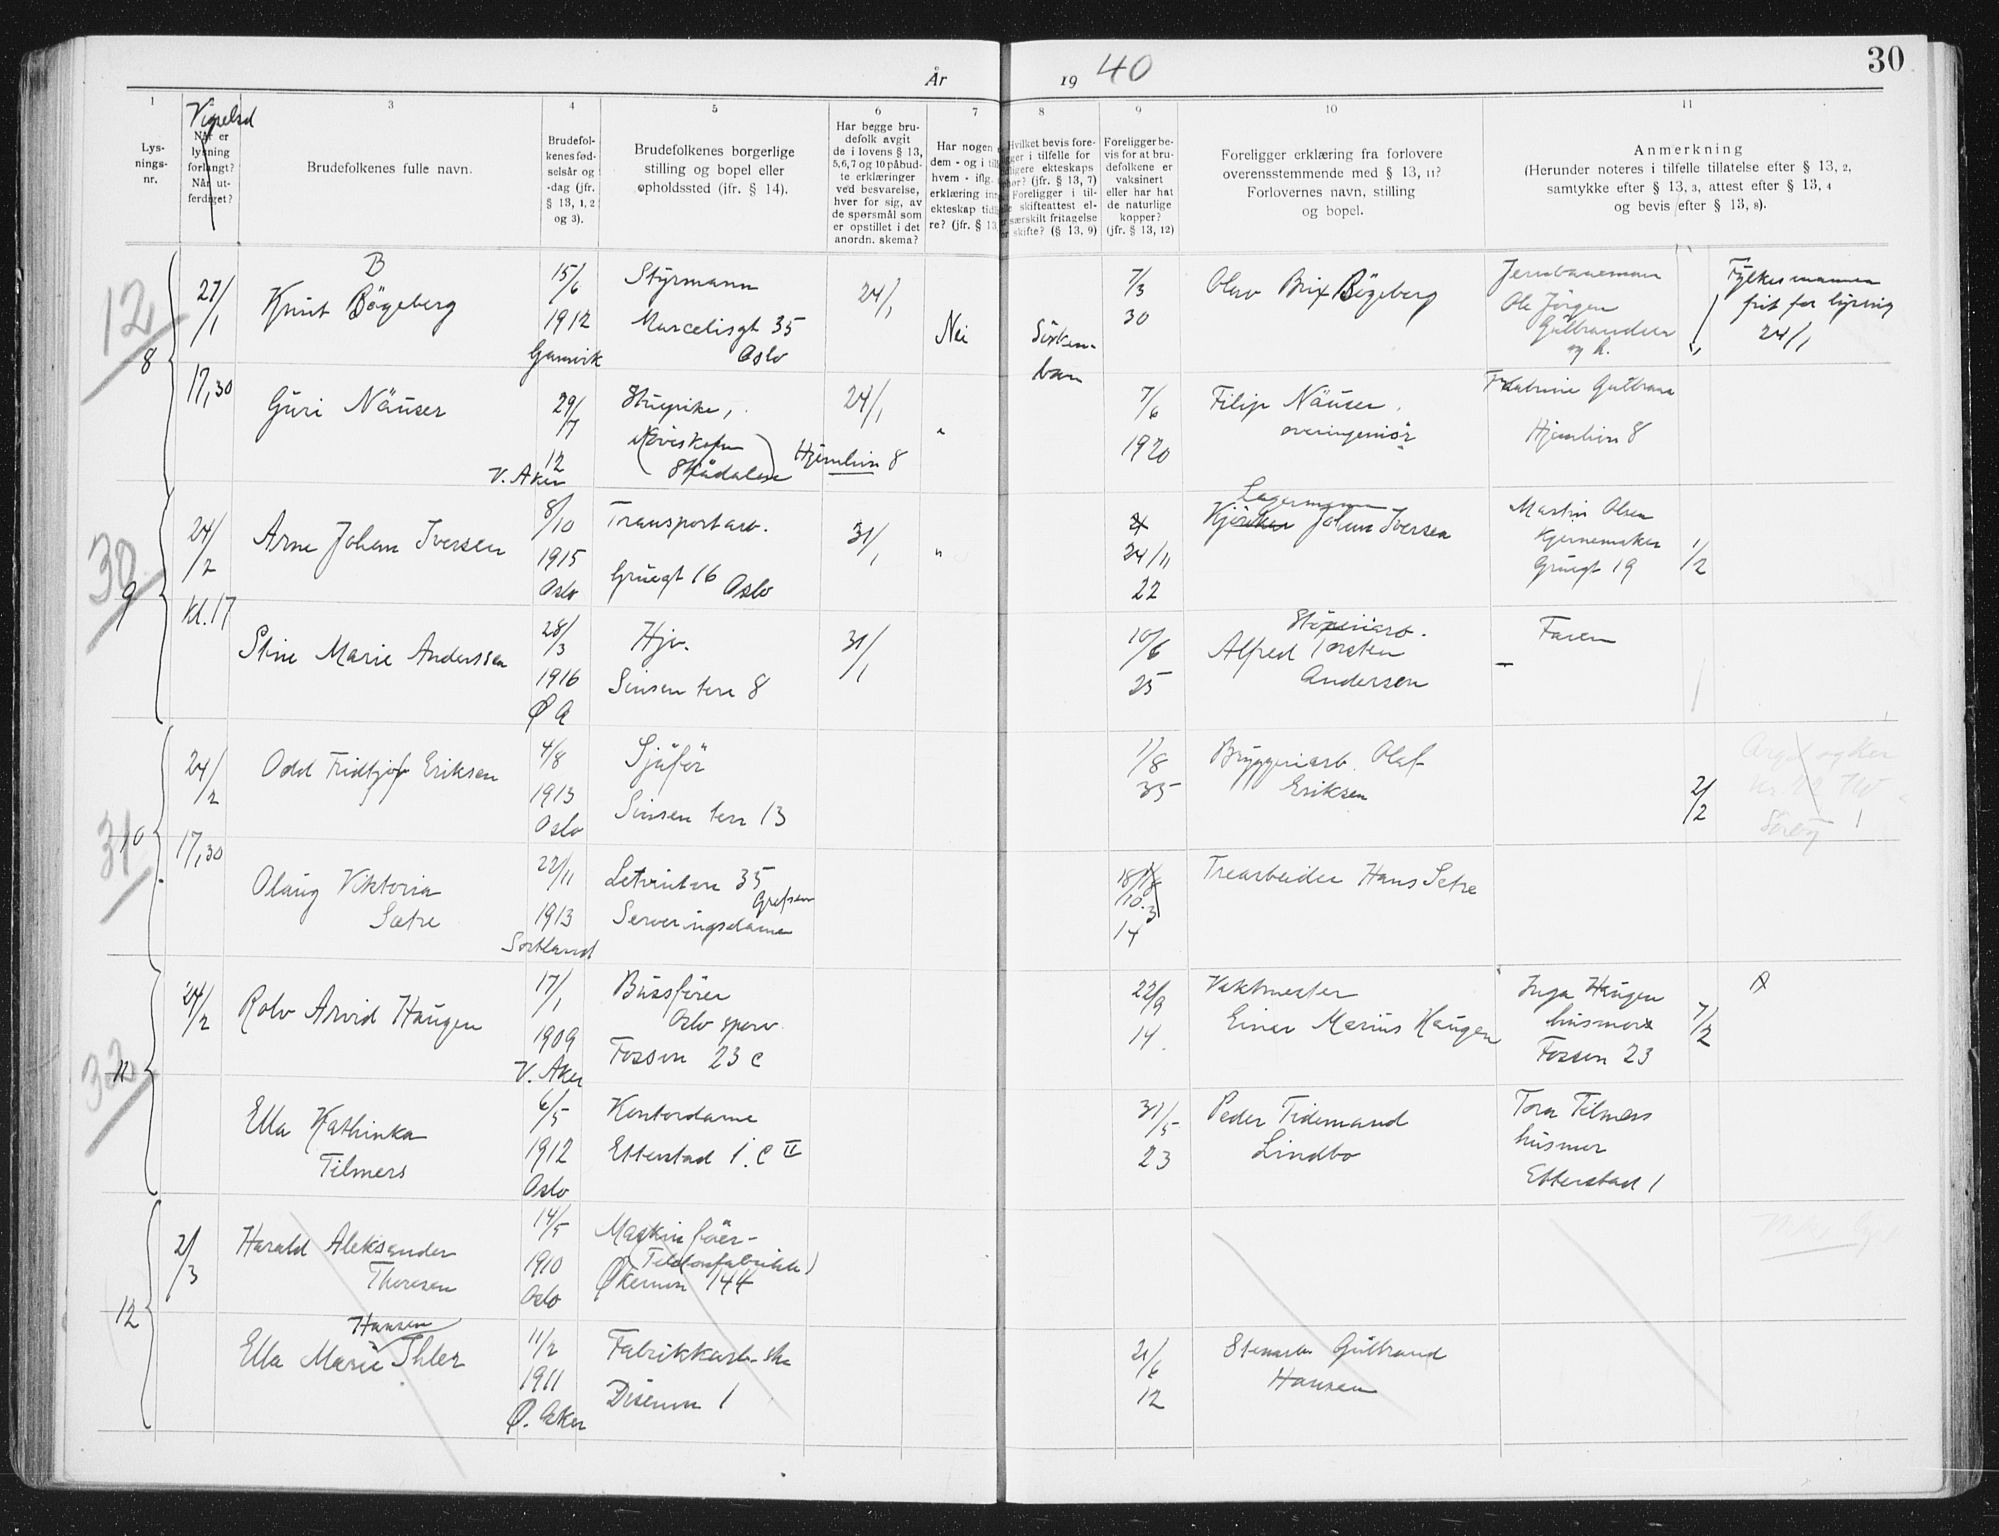 År 19 40
30
1
3
4
5
6
7
8
9
10
11
Lys-
nings-
nr.
Vigselsd
Når er
lysning
forlangt?
Når ut-
ferdiget?
Brudefolkenes fulle navn.
Brudefol-
kenes fød-
selsår og
-dag (jfr.
§ 13, 1, 2
og 3).
Brudefolkenes borgerlige
stilling og bopel eller
opholdssted (jfr. § 14).
Har begge bru-
defolk avgit
de i lovens § 13,
5,6,7 og 10 påbud-
te erklæringer
ved besvarelse,
hver for sig, av
de spørsmål som
er opstillet i det
anordn. skema?
Har nogen
dem - og i til
hvem - iflg.
erklæring inn
ekteskap tidl
re? (jfr. § 13
Hvilket bevis fore-
ger i tilfelle for
ligere ekteskaps
hør? (jfr. § 13, 7)
Foreligger i til-
le skifteattest el-
særskilt fritagelse
for skifte? (§ 13, 9)
Foreligger be-
vis for at bru-
defolkene er
vaksinert
eller har hat
de naturlige
kopper?
(jfr. § 13, 12)
Foreligger erklæring fra forlovere
overensstemmende med § 13, 11?
Forlovernes navn, stilling
og bopel.
Anmerkning
(Herunder noteres i tilfelle tillatelse efter § 13, 2,
samtykke efter § 13, 3, attest efter § 13, 4
og bevis efter § 13, 8).
12
8
27/1
17,30
B
Knut Bøgeberg
15/6
1912
Gamvik
Styrmann
Marcelisgt 35
Oslo
24/1
Nei
7/3
30
Olav Brix Bøgeberg
Jernbanemann
Ole Jörgen
Gulbrandsen
og h.
Fylkesmannen
frit for lysning
24/1
Guri Näuser
29/7
12
V. Aker
Skådalen
Hjemliin 8
24/1
"
7/6
1920
Filip Näuser
overingeniör
Hjemliin 8
30
9
24/2
kl. 17
Arne Johan Iversen
8/10
1915
Oslo
Transportarb.
Gruegt 16 Oslo
31/1
"
24/11
22
Lagermann
Johan Iversen
Martin Olsen
Kjernemaker
Gruegt 19
1/2
Stine Marie Anderssen
28/3
1916
Ø A
Hjv.
Sinsen terr 8
31/1
10/6
25
Alfred Torsten
Andersen
Faren
31
10
24/2
17,30
Odd Fridtjof Eriksen
4/8
1913
Oslo
Sjåför
Sinsen terr 13
1/8
35
Bryggeriarb. Olaf
Eriksen
2/2
Olaug Viktoria
Sætre
22/11
1913
Sortland
35
Grefsen
Serveringsdame
18/10
14
Trearbeider Hans Setre
32
11
24/2
Rolv Arvid Haugen
17/1
1909
V. Aker
Bussfører
Oslo sporv.
Fossvn 23 c
22/9
14
Vaktmester
Einar Marius Haugen
Inga Haugen
husmor
Fossvn 23
7/2
Ella Kathinka
Tilmers
6/5
1912
Oslo
Kontordame
Etterstad 1. C II
31/5
23
Peder Tidemand
Lindbo
Tora Tilmers
husmor
Etterstad 1
12
2/3
Harald Aleksander
Thoresen
14/5
1910
Oslo
Økernvn 144
Hansen
Ella Marie Ihler
11/2
1911
Ø. Aker
Disenvn 1
21/6
12
Stenarb Gulbrand
Hansen